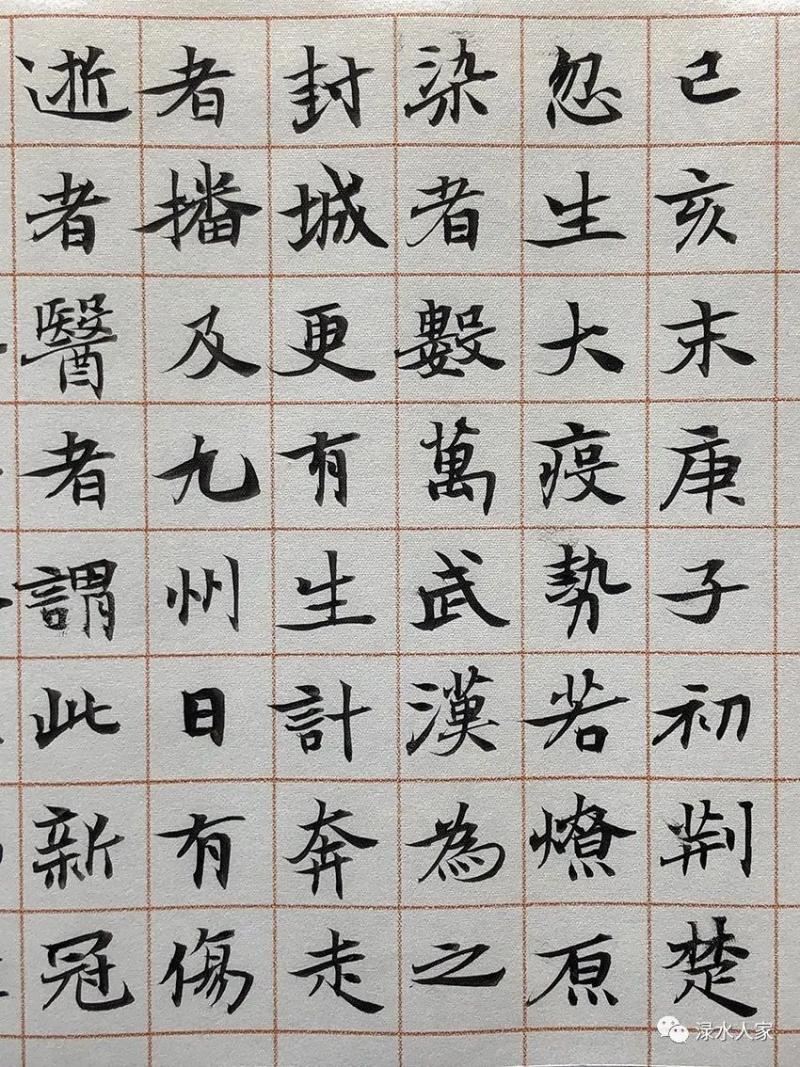 己亥末庚子初荆楚
忽生大疫勢若燎原
染者數萬武漢為之
封城更有生計奔走
者播及九州日有傷
逝者醫者謂此新冠
渌水人家